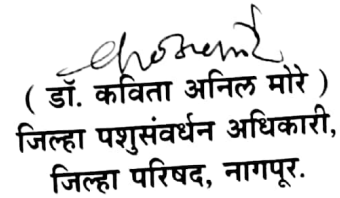 ( डॉ. कविता अनिल मोरे )
जिल्हा पशुसंवर्धन अधिकारी,
जिल्हा परिषद, नागपूर.